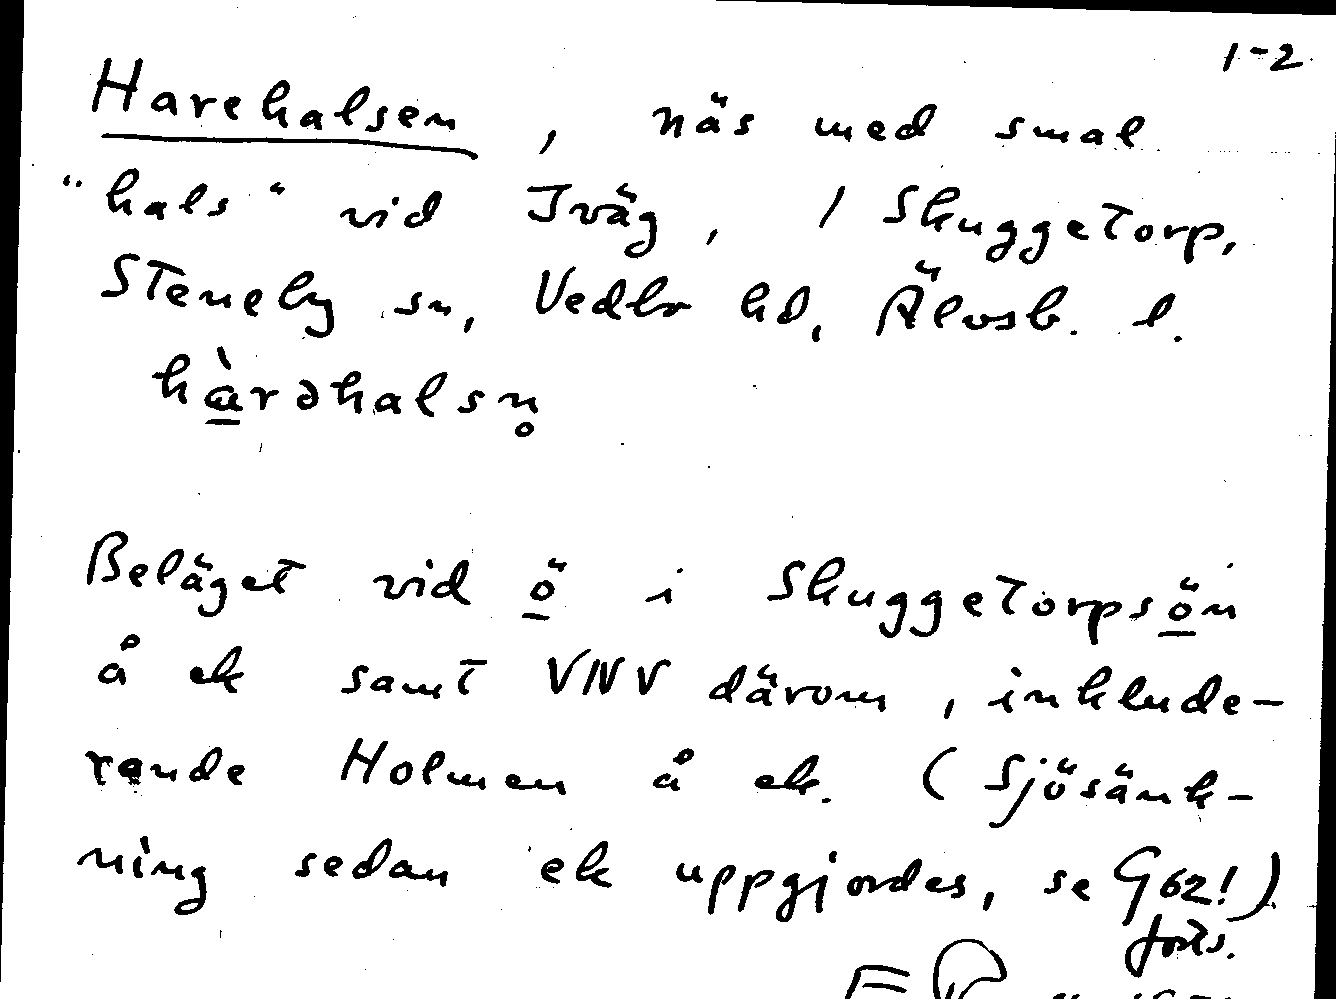 1-2
Harehalsen, näs med smal
"hals" vid Iväg, / Skuggetorp,
Steneby sn, Vedbo hd, Älvsb. l.
hàrəhalsn̥
Beläget vid ö i Skuggetorpsön
å ek samt VNV därom, inklude-
rande Holmen å ek. (Sjösänk-
ning sedan ek uppgjordes, se G62!)
forts.